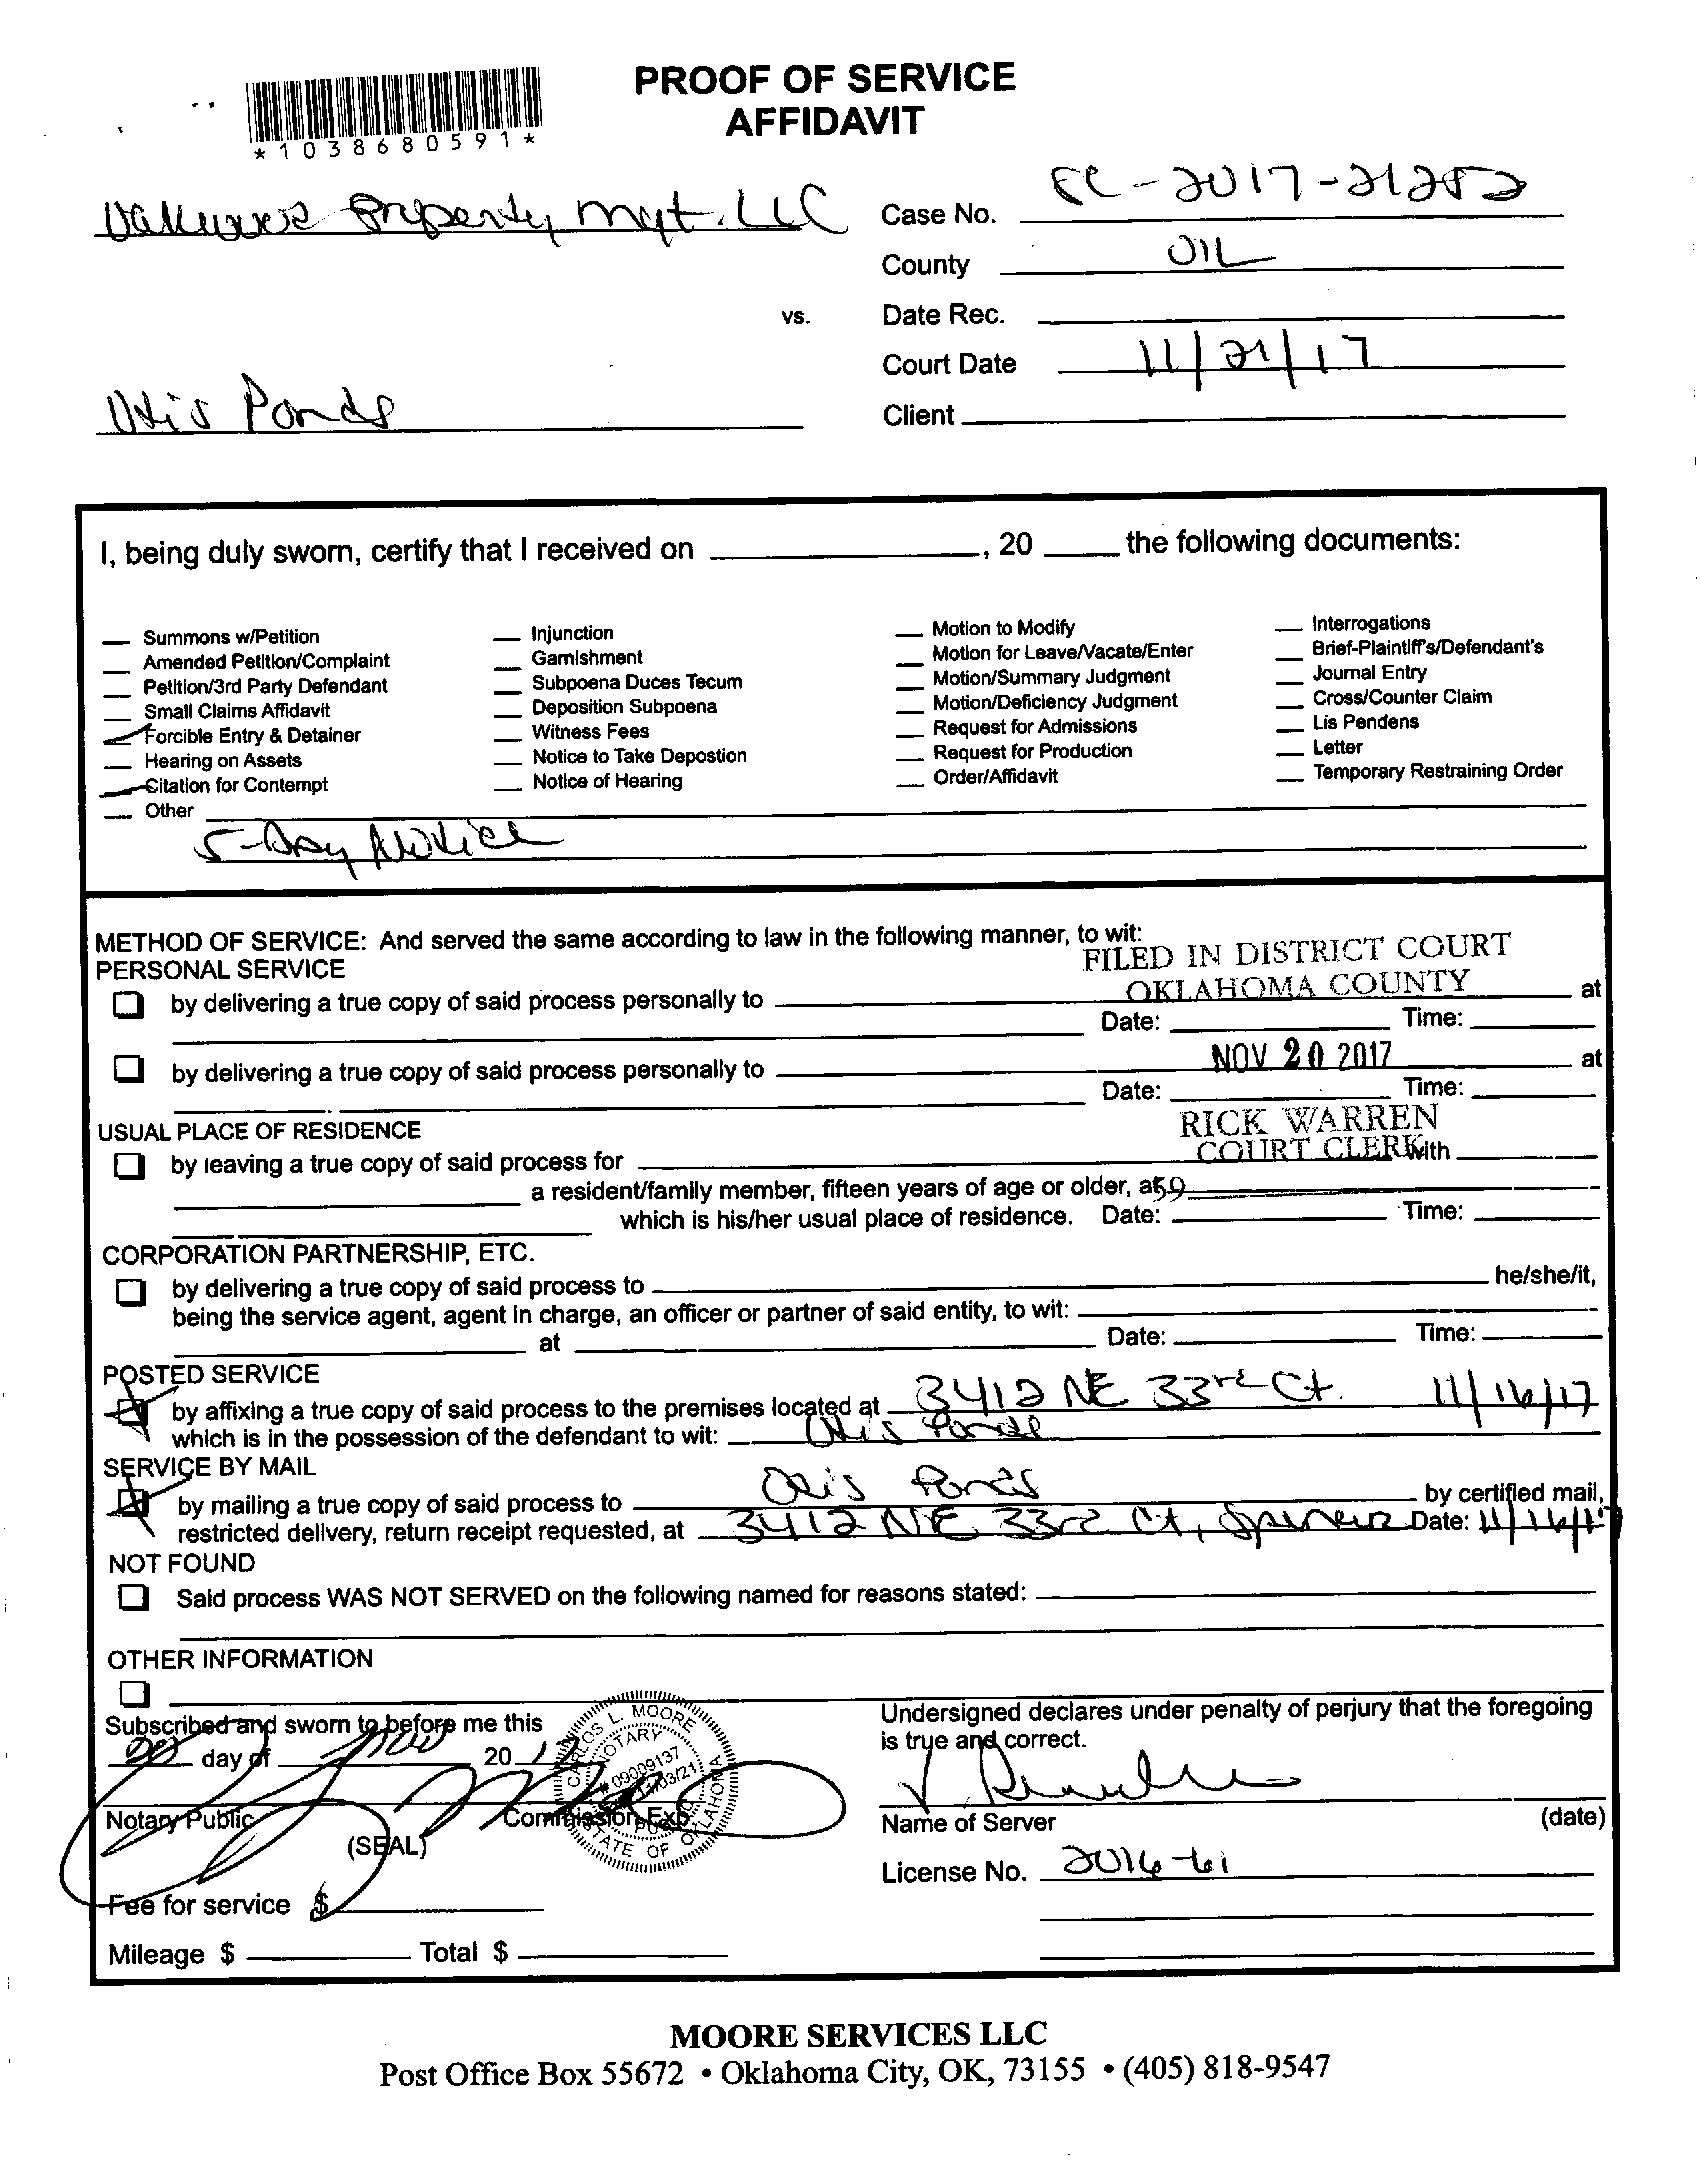 PROOF OF SERVICE
AFFIDAVIT
*1038680591*
Property Mgt. LLC
Case No. SC-2017-21252
County
vs.
Date Rec.
Court Date 11/21/17
Otis Ponds
Client
I, being duly sworn, certify that I received on , 20 the following documents:
Summons w/Petition
Amended Petition/Complaint
Petition/3rd Party Defendant
Small Claims Affidavit
Forcible Entry & Detainer
Hearing on Assets
Citation for Contempt
Other
Injunction
Garnishment
Subpoena Duces Tecum
Deposition Subpoena
Witness Fees
Notice to Take Depostion
Notice of Hearing
Motion to Modify
Motion for Leave/Vacate/Enter
Motion/Summary Judgment
Motion/Deficiency Judgment
Request for Admissions
Request for Production
Order/Affidavit
Interrogations
Brief-Plaintiff's/Defendant's
Journal Entry
Cross/Counter Claim
Lis Pendens
Letter
Temporary Restraining Order
5-Day Notice
METHOD OF SERVICE: And served the same according to law in the following manner, to wit:
FILED IN DISTRICT COURT
PERSONAL SERVICE
OKLAHOMA COUNTY
by delivering a true copy of said process personally to at
Date: Time:
NOV 20 2017
by delivering a true copy of said process personally to at
Date: Time:
RICK WARREN
USUAL PLACE OF RESIDENCE
COURT CLERK
by leaving a true copy of said process for with
a resident/family member, fifteen years of age or older, at
59
which is his/her usual place of residence. Date: Time:
CORPORATION PARTNERSHIP, ETC.
by delivering a true copy of said process to he/she/it,
being the service agent, agent in charge, an officer or partner of said entity, to wit:
at Date: Time:
POSTED SERVICE
by affixing a true copy of said process to the premises located at 3412 NE 33rd Ct. 11/16/17
which is in the possession of the defendant to wit: Otis Ponds
SERVICE BY MAIL
by mailing a true copy of said process to Otis Ponds by certified mail,
restricted delivery, return receipt requested, at 3412 NE 33rd Ct, Spencer Date: 11/16/17
NOT FOUND
Said process WAS NOT SERVED on the following named for reasons stated:
OTHER INFORMATION
Subscribed and sworn to before me this
20 day of Nov 2017
CARLOS L. MOORE
NOTARY
# 09009137
PUBLIC
STATE OF OKLAHOMA
Notary Public Commission Exp.
(SEAL)
Fee for service $
Mileage $ Total $
Undersigned declares under penalty of perjury that the foregoing
is true and correct.
Name of Server (date)
License No. 2016-61
MOORE SERVICES LLC
Post Office Box 55672 • Oklahoma City, OK, 73155 • (405) 818-9547